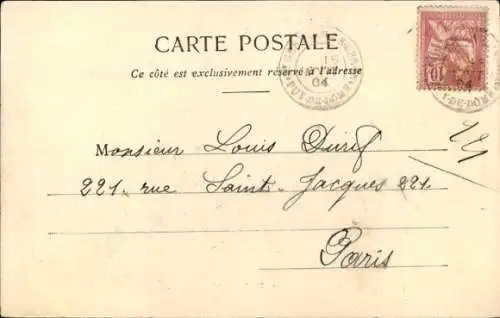 CARTE POSTALE
Ce côté est exclusivement réservé à l'adresse
15
04
10
Monsieur Louis
221. rue Saint-Jacques 221.
Paris